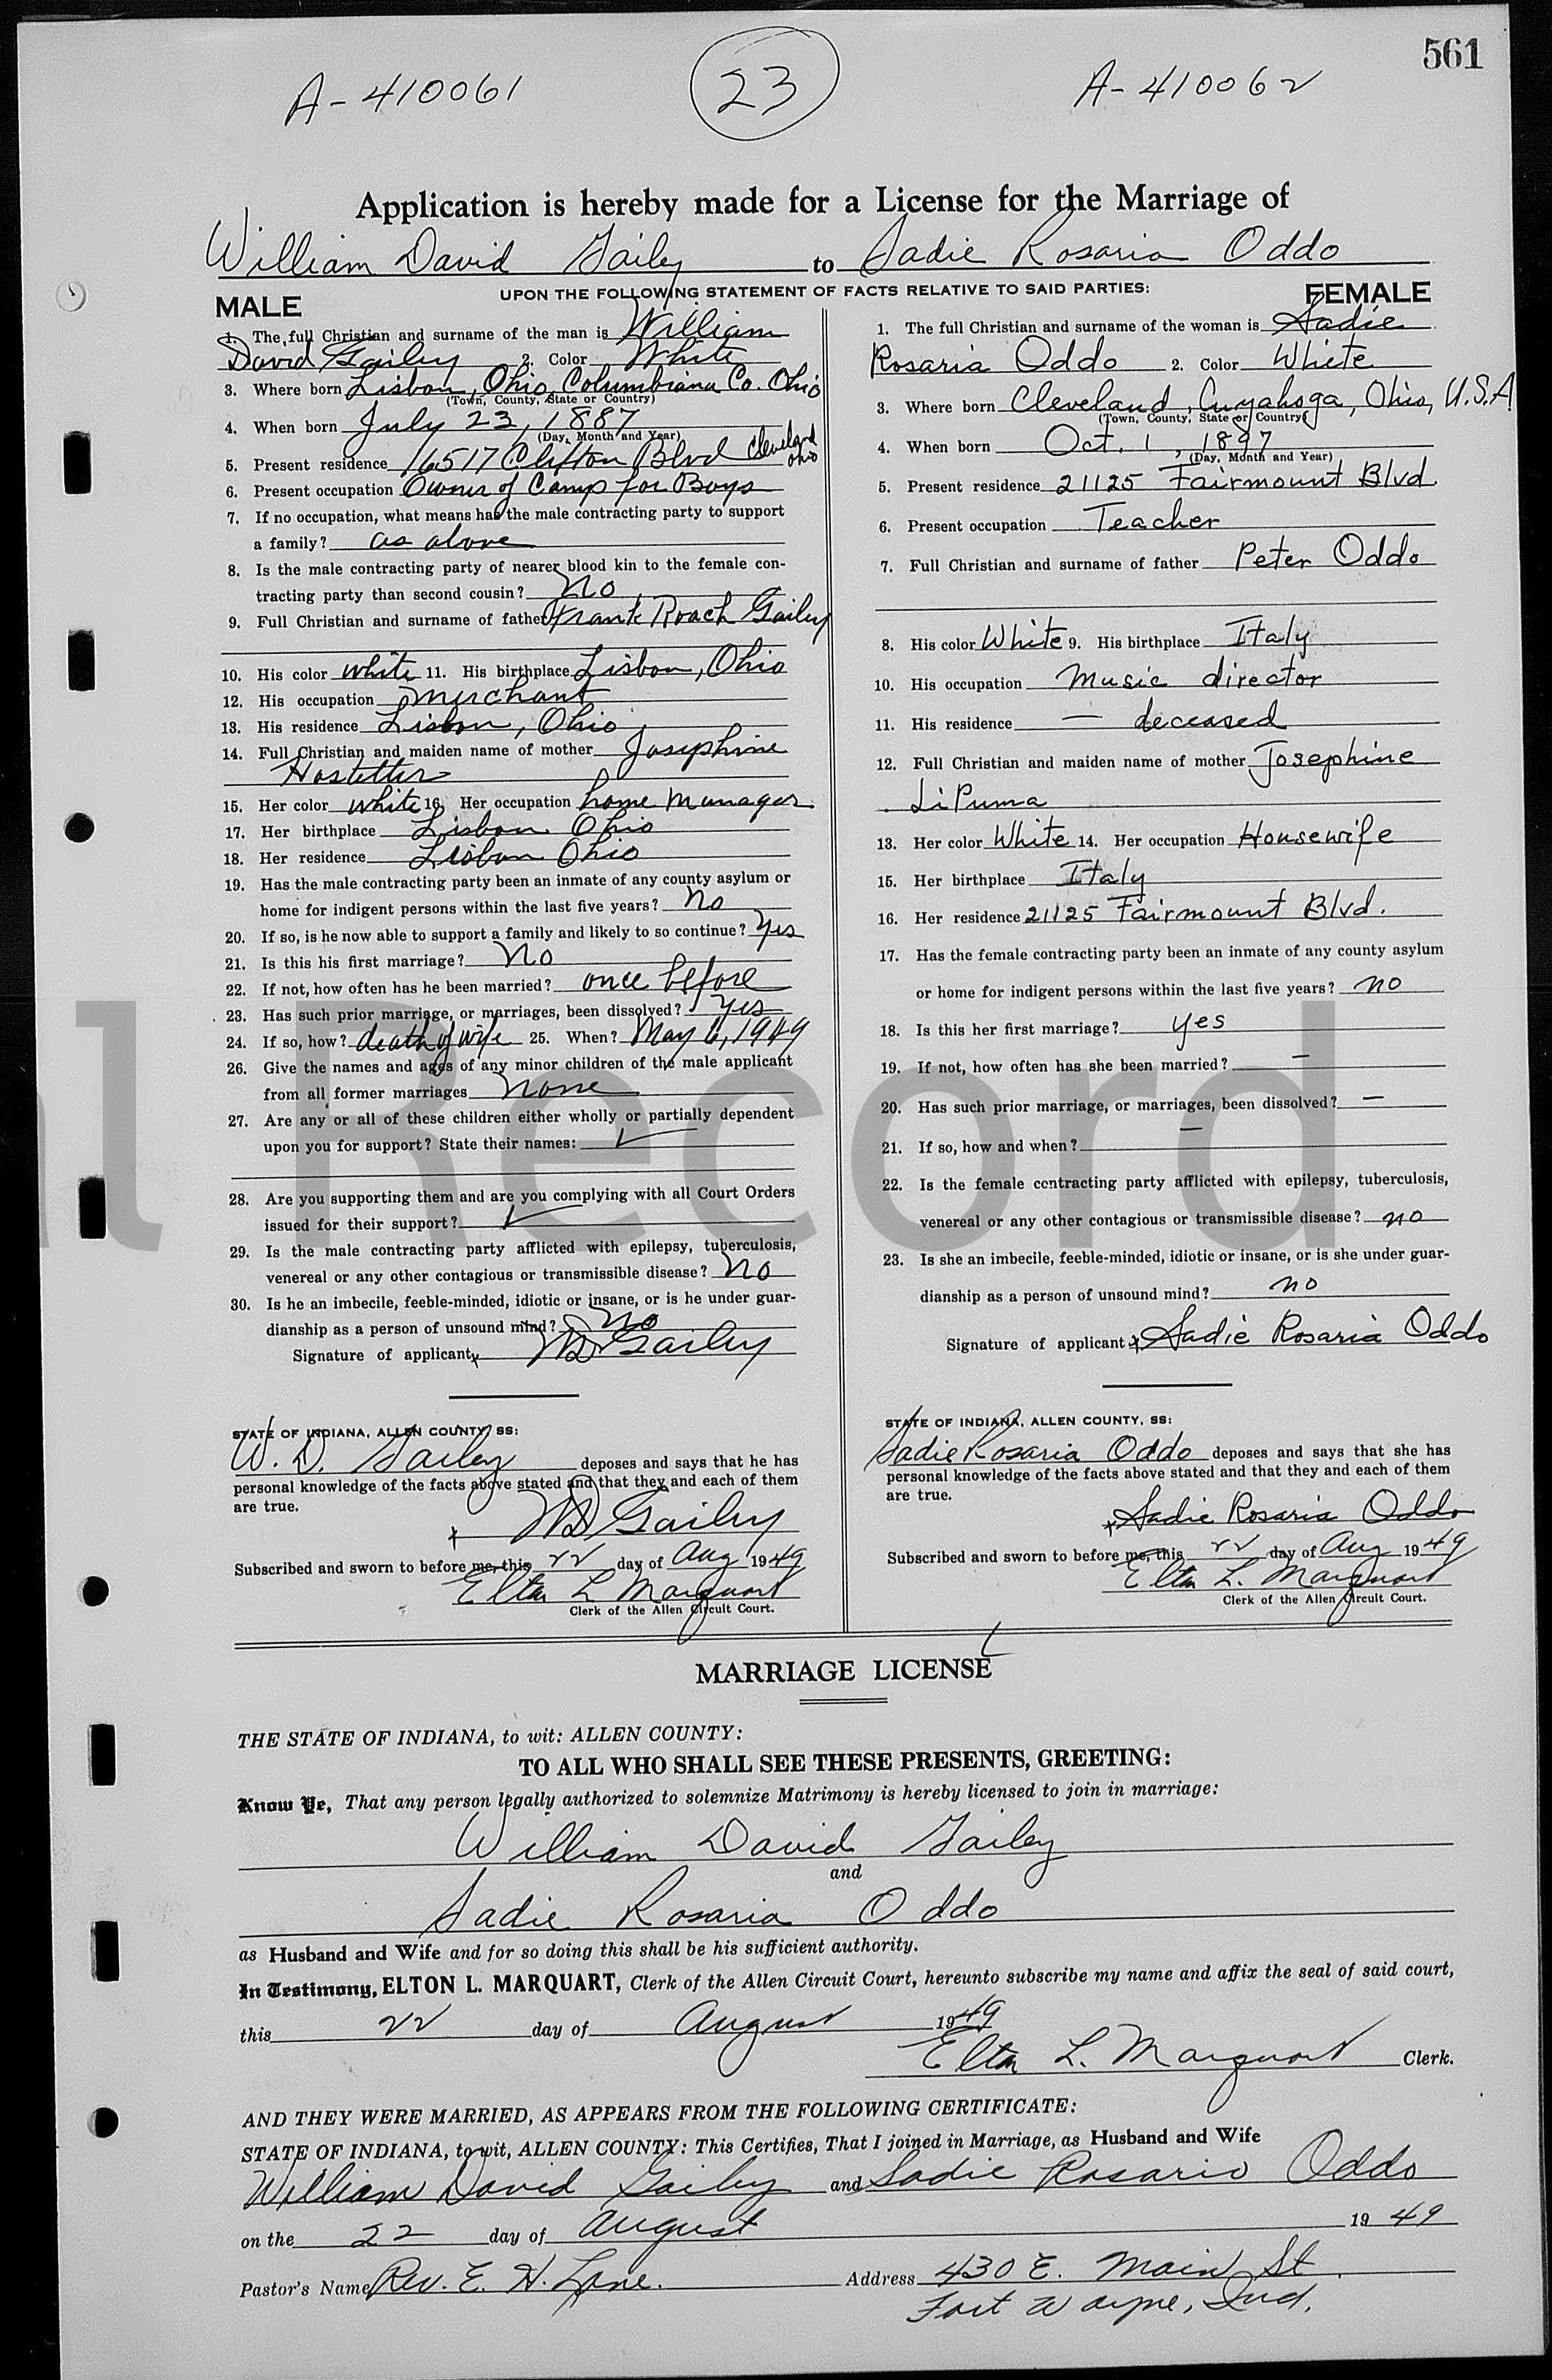 561
A-410061
23
A-410062
Application is hereby made for a License for the Marriage of
William David Gailey to Sadie Rosaria Oddo
UPON THE FOLLOWING STATEMENT OF FACTS RELATIVE TO SAID PARTIES:
MALE
1. The full Christian and surname of the man is William
David Gailey 2. Color White
3. Where born Lisbon, Ohio, Columbiana Co. Ohio
(Town, County, State or Country)
4. When born July 23, 1887
(Day, Month and Year)
5. Present residence 16517 Clifton Blvd Cleveland Ohio
6. Present occupation Owner of Camp for Boys
7. If no occupation, what means has the male contracting party to support
a family? as above
8. Is the male contracting party of nearer blood kin to the female con-
tracting party than second cousin? No
9. Full Christian and surname of father Frank Roach Gailey
10. His color white 11. His birthplace Lisbon, Ohio
12. His occupation merchant
13. His residence Lisbon, Ohio
14. Full Christian and maiden name of mother Josephine
Hostetter
15. Her color white 16. Her occupation home manager
17. Her birthplace Lisbon Ohio
18. Her residence Lisbon Ohio
19. Has the male contracting party been an inmate of any county asylum or
home for indigent persons within the last five years? no
20. If so, is he now able to support a family and likely to so continue? Yes
21. Is this his first marriage? No
22. If not, how often has he been married? once before
23. Has such prior marriage, or marriages, been dissolved? yes
24. If so, how? death of wife 25. When? May 6, 1949
26. Give the names and ages of any minor children of the male applicant
from all former marriages none
27. Are any or all of these children either wholly or partially dependent
upon you for support? State their names: ✓
28. Are you supporting them and are you complying with all Court Orders
issued for their support? ✓
29. Is the male contracting party afflicted with epilepsy, tuberculosis,
venereal or any other contagious or transmissible disease? no
30. Is he an imbecile, feeble-minded, idiotic or insane, or is he under guar-
dianship as a person of unsound mind? no
Signature of applicant x WD Gailey
STATE OF INDIANA, ALLEN COUNTY, SS:
W. D. Gailey deposes and says that he has
personal knowledge of the facts above stated and that they and each of them
are true.
x WD Gailey
Subscribed and sworn to before me, this 22 day of Aug 1949
Elton L Marquart
Clerk of the Allen Circuit Court.
FEMALE
1. The full Christian and surname of the woman is Sadie
Rosaria Oddo 2. Color White
3. Where born Cleveland, Cuyahoga, Ohio, U.S.A
(Town, County, State or Country)
4. When born Oct. 1, 1897
(Day, Month and Year)
5. Present residence 21125 Fairmount Blvd.
6. Present occupation Teacher
7. Full Christian and surname of father Peter Oddo
8. His color White 9. His birthplace Italy
10. His occupation Music director
11. His residence — deceased
12. Full Christian and maiden name of mother Josephine
LiPuma
13. Her color White 14. Her occupation Housewife
15. Her birthplace Italy
16. Her residence 21125 Fairmount Blvd.
17. Has the female contracting party been an inmate of any county asylum
or home for indigent persons within the last five years? no
18. Is this her first marriage? yes
19. If not, how often has she been married? —
20. Has such prior marriage, or marriages, been dissolved? —
21. If so, how and when? —
22. Is the female contracting party afflicted with epilepsy, tuberculosis,
venereal or any other contagious or transmissible disease? no
23. Is she an imbecile, feeble-minded, idiotic or insane, or is she under guar-
dianship as a person of unsound mind? no
Signature of applicant x Sadie Rosaria Oddo
STATE OF INDIANA, ALLEN COUNTY, SS:
Sadie Rosaria Oddo deposes and says that she has
personal knowledge of the facts above stated and that they and each of them
are true.
x Sadie Rosaria Oddo
Subscribed and sworn to before me, this 22 day of Aug 1949
Elton L. Marquart
Clerk of the Allen Circuit Court.
l Record
MARRIAGE LICENSE
THE STATE OF INDIANA, to wit: ALLEN COUNTY:
TO ALL WHO SHALL SEE THESE PRESENTS, GREETING:
Know Ye, That any person legally authorized to solemnize Matrimony is hereby licensed to join in marriage:
William David Gailey
and
Sadie Rosaria Oddo
as Husband and Wife and for so doing this shall be his sufficient authority.
In Testimony, ELTON L. MARQUART, Clerk of the Allen Circuit Court, hereunto subscribe my name and affix the seal of said court,
this 22 day of August 1949
Elton L. Marquart Clerk.
AND THEY WERE MARRIED, AS APPEARS FROM THE FOLLOWING CERTIFICATE:
STATE OF INDIANA, to wit, ALLEN COUNTY: This Certifies, That I joined in Marriage, as Husband and Wife
William David Gailey and Sadie Rosario Oddo
on the 22 day of August 1949
Pastor's Name Rev. E. H. Lane. Address 430 E. Main St.
Fort Wayne, Ind.